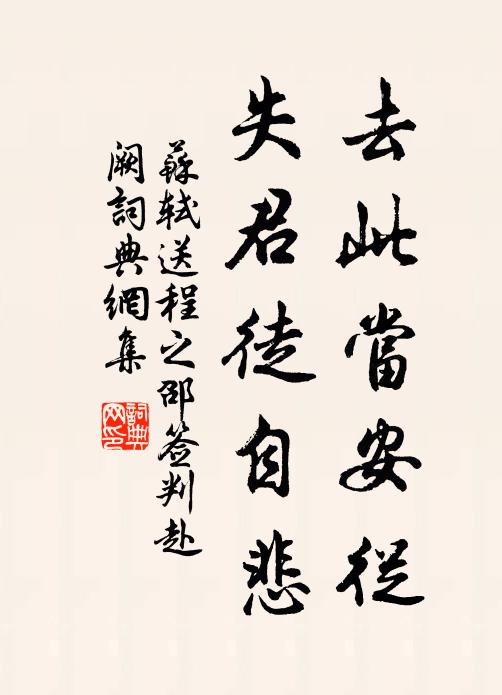 去此當安從
失君徒自悲
蘇軾送程之邵簽判赴
闕詞典網集
詞典
网印